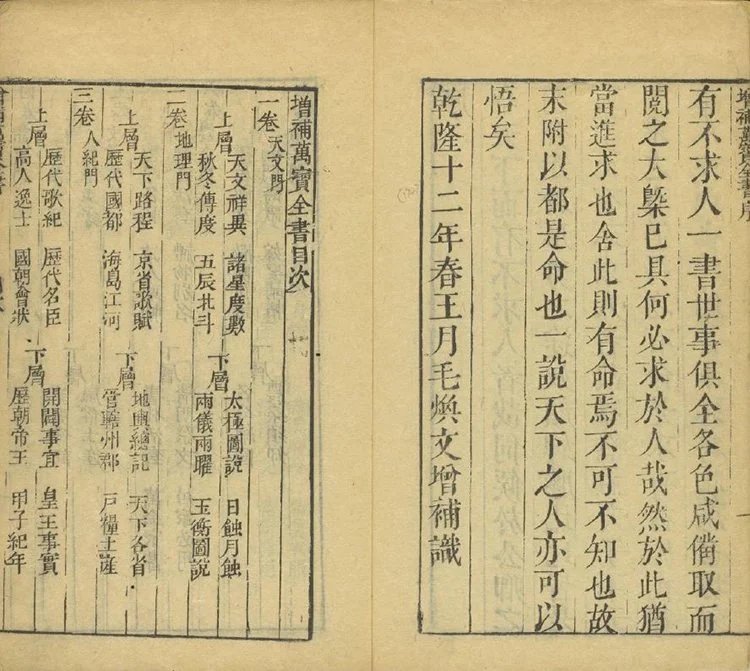 有不求人一書世事俱全各色咸備取而
閱之大槩已具何必求於人哉然於此猶
當進求也舍此則有命焉不可不知也故
末附以都是命也一說天下之人亦可以
悟矣
乾隆十二年春王月毛煥文增補識
增補萬寶全書目次
一卷天文門
上層 天文祥異 諸星度數 下層 太極圖說 日蝕月蝕
秋冬傳度 五辰北斗 兩儀兩曜 玉衡圖說
二卷地理門
上層 天下路程 京省歌賦 下層 地輿總記 天下各省
歷代國都 海島江河 管轄州郡 戸糧土產
三卷人紀門
上層 歷代歌紀 歷代名臣 下層 開闢事宜 皇王事實
高人逸士 國朝僉狀 歷朝帝王 甲子紀年